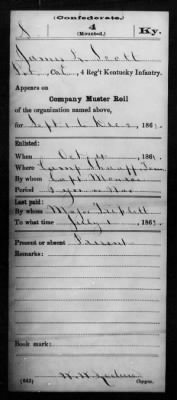 (Confederate.)
S 4 Ky.
(Mounted.)
James Scott
Pvt., Co., 4 Reg't Kentucky Infantry.
Appears on
Company Muster Roll
of the organization named above,
for Sept 1 to Dec, 186
Enlisted:
When Oct, 186
Where Camp
By whom Capt.
Period 3 yrs or War
Last paid:
By whom Major
To what time July 1, 186
Present or absent Present
Remarks:
Book mark:
(642) Copyist.